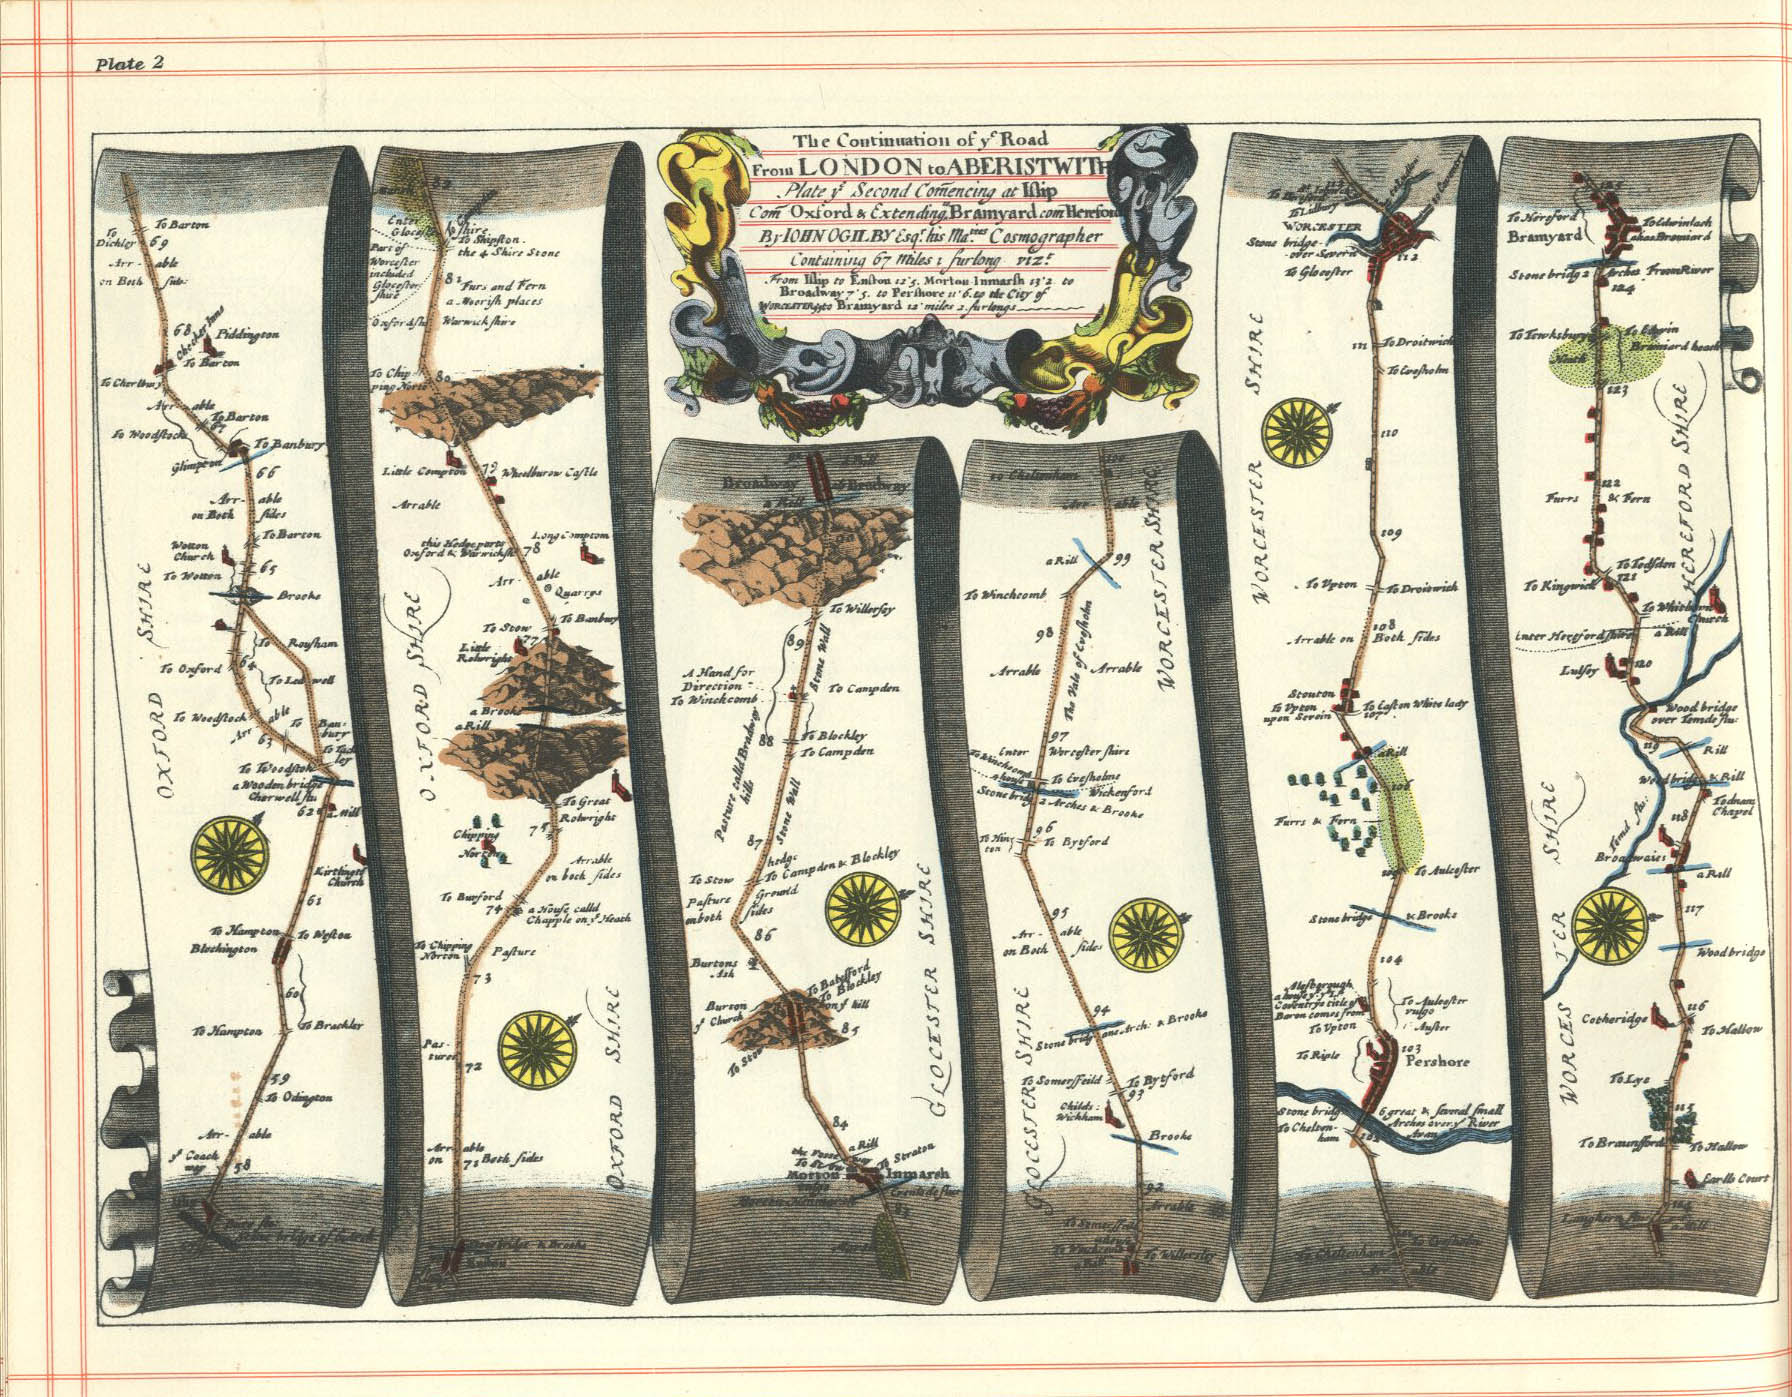 Plate 2
The Continuation of yᵉ Road
From LONDON to ABERISTWITH
Plate yᵉ Second Comencing at Islip
Com Oxford & Extending to Bramyard com Hereford
By IOHN OGILBY Esqr. his Maties Cosmographer
Containing 67 Miles 1 furlong vizt
From Islip to Enston 12'5. Morton Inmarsh 13'2 to
Broadway 7'5. to Pershore 11'6. to the City of
WORCESTER to Bramyard 12 miles 2 furlongs
To Barton
To
Dichley
69
Arr- able
on Both sides
68
Piddington
To Barton
To Barton
67
To Woodstock
To Banbury
Glimpton
66
Arr- able
on Both sides
To Barton
Wotton
Church
65
To Wotton
Brooke
OXFORD SHIRE
To Roysham
64
To Oxford
To Ledwell
To Woodstock
Arr able
63
To Ban-
bury
To Tack
ley
To Woodstok
a Wooden bridge
Cherwell flu
62
a Mill
Kirtlington
Church
61
To Hampton
To Weston
Blechington
60
To Hampton
To Brackley
59
To Odington
Arr- able
yᵉ Coach
way
58
82
To Shipston
the 4 Shire Stone
Part of
Worcester
included
Glocester
shire
81
Furs and Fern
a Moorish places
Oxfordshi
Warwickshire
To Chip
ping Norto
80
Little Compton
79
Wheelburow Castle
Arrable
this Hedge parts
Oxford & Warwicksh
78
Long Compton
Arr- able
Quarrys
To Stow
77
To Banbury
Little
Rolwright
OXFORD SHIRE
a Brooke
a Rill
To Great
Rolwright
75
Chipping
Norton
Arrable
on both sides
To Burford
74
a House calld
Chapple on yᵉ Heath
To Chipping
Norton
Pasture
73
OXFORD SHIRE
Pas-
tures
72
Arr- able
on Both sides
71
Stone bridge & Brooke
Broadway
a Rill
90
To Willersey
89
Stone Wall
A Hand for
Direction
To Winchcomb
To Campden
88
To Blockley
To Campden
Pasture called Bradway
hills
Stone Wall
87
hedge
To Campden & Blockley
To Stow
Pasture
on both
Ground
sides
86
Burtons
Ash
To Batesford
To Blockley
on yᵉ hill
Burton
yᵉ Church
85
To Stow
GLOCESTER SHIRE
84
a Rill
To Stratton
the Fosse way
Morton Inmarsh
83
to Cheltenham
100
Arr- able
99
a Rill
WORCESTER SHIRE
To Winchcomb
98
The Vale of Evesholm
Arrable
Arrable
97
Enter Worcester shire
To Evesholme
Wickenford
Stone bridg 2 Arches & Brooke
96
To Hin
ton
To Bytford
95
Arr- able
on Both sides
94
Stone bridg one Arch: & Brooke
To Somersfeild
To Bytford
93
Childs:
Wickham
Brooke
GLOCESTER SHIRE
92
Arrable
To Willersley
To Ludbury
WORCESTER
Stone bridge
over Severn
To Glocester
112
111
To Droitwich
To Evesholm
WORCESTER SHIRE
110
109
To Upton
To Droitwich
108
Arrable on Both sides
Stouton
To Upton
upon Severn
To Caston White lady
107
a Rill
106
Furrs & Fern
105
To Aulcester
Stone bridge & Brooke
104
To Upton
To Aulcester
vulgo
Auster
103
To Riple
Pershore
Stone bridg
6 great & several small
Arches over yᵉ River
Avan
To Chelten-
ham
102
To Cheltenham
125
To Hereford
Bramyard
To Edwinlach
alias Bromiard
Stone bridg 2 Arches From River
124
To Tewksbury
To Edwin
Bromiard heath
Heath
123
HEREFORD SHIRE
122
Furrs & Fern
To Tedsden
121
To Kingwick
To Whitborn
Church
a Rill
Enter Herefordshire
Lulsey
120
Wood bridge
over Temde flu:
119
Rill
Wood bridg & Rill
Todnam
Chapel
118
Temd flu:
Broadwaies
a Rill
117
Wood bridge
116
Cotheridge
To Hallow
To Lye
115
To Braunsford
To Hallow
Earls Court
WORCESTER SHIRE
114
Langhern flu
a Mill